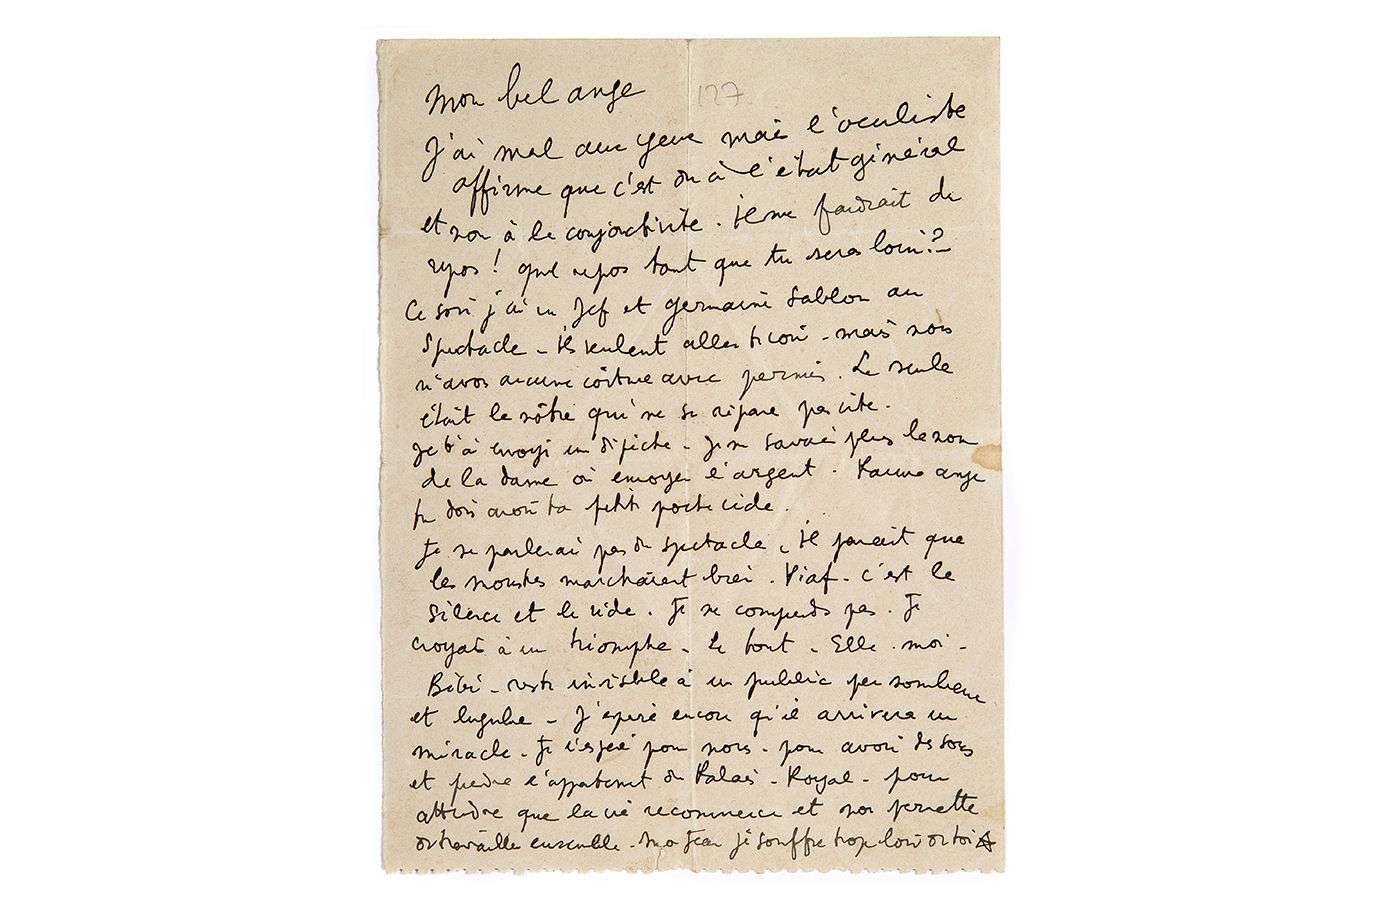 Mon bel ange
127
J'ai mal aux yeux mais l'oculiste
affirme que c'est dû à l'état général
et non à la conjonctivite. Il me faudrait du
repos! quel repos tant que tu seras loin?
Ce soir j'ai eu Jef et Germaine Sablon au
spectacle - Ils veulent aller te voir - mais nous
n'avons aucune voiture avec permis. La seule
était la nôtre qui ne se répare pas vite.
Je t'ai envoyé une dépêche - Je ne savais plus le nom
de la dame où envoyer l'argent. Pauvre ange
tu dois avoir ta petite poche vide.
Je ne parlerai pas du spectacle, Il parait que
les nôtres marchaient bien. Piaf - c'est le
silence et le vide. Je ne comprends pas. Je
croyais à un triomphe - Le tout - Elle - moi -
Bébé - reste invisible à un public peu nombreux
et lugubre - J'espère encore qu'il arrivera un
miracle. Je l'espère pour nous - pour avoir des sous
et prendre l'appartement du Palais-Royal - pour
attendre que la vie recommence et nous permette
de travailler ensemble. Mon Jean je souffre trop loin de toi